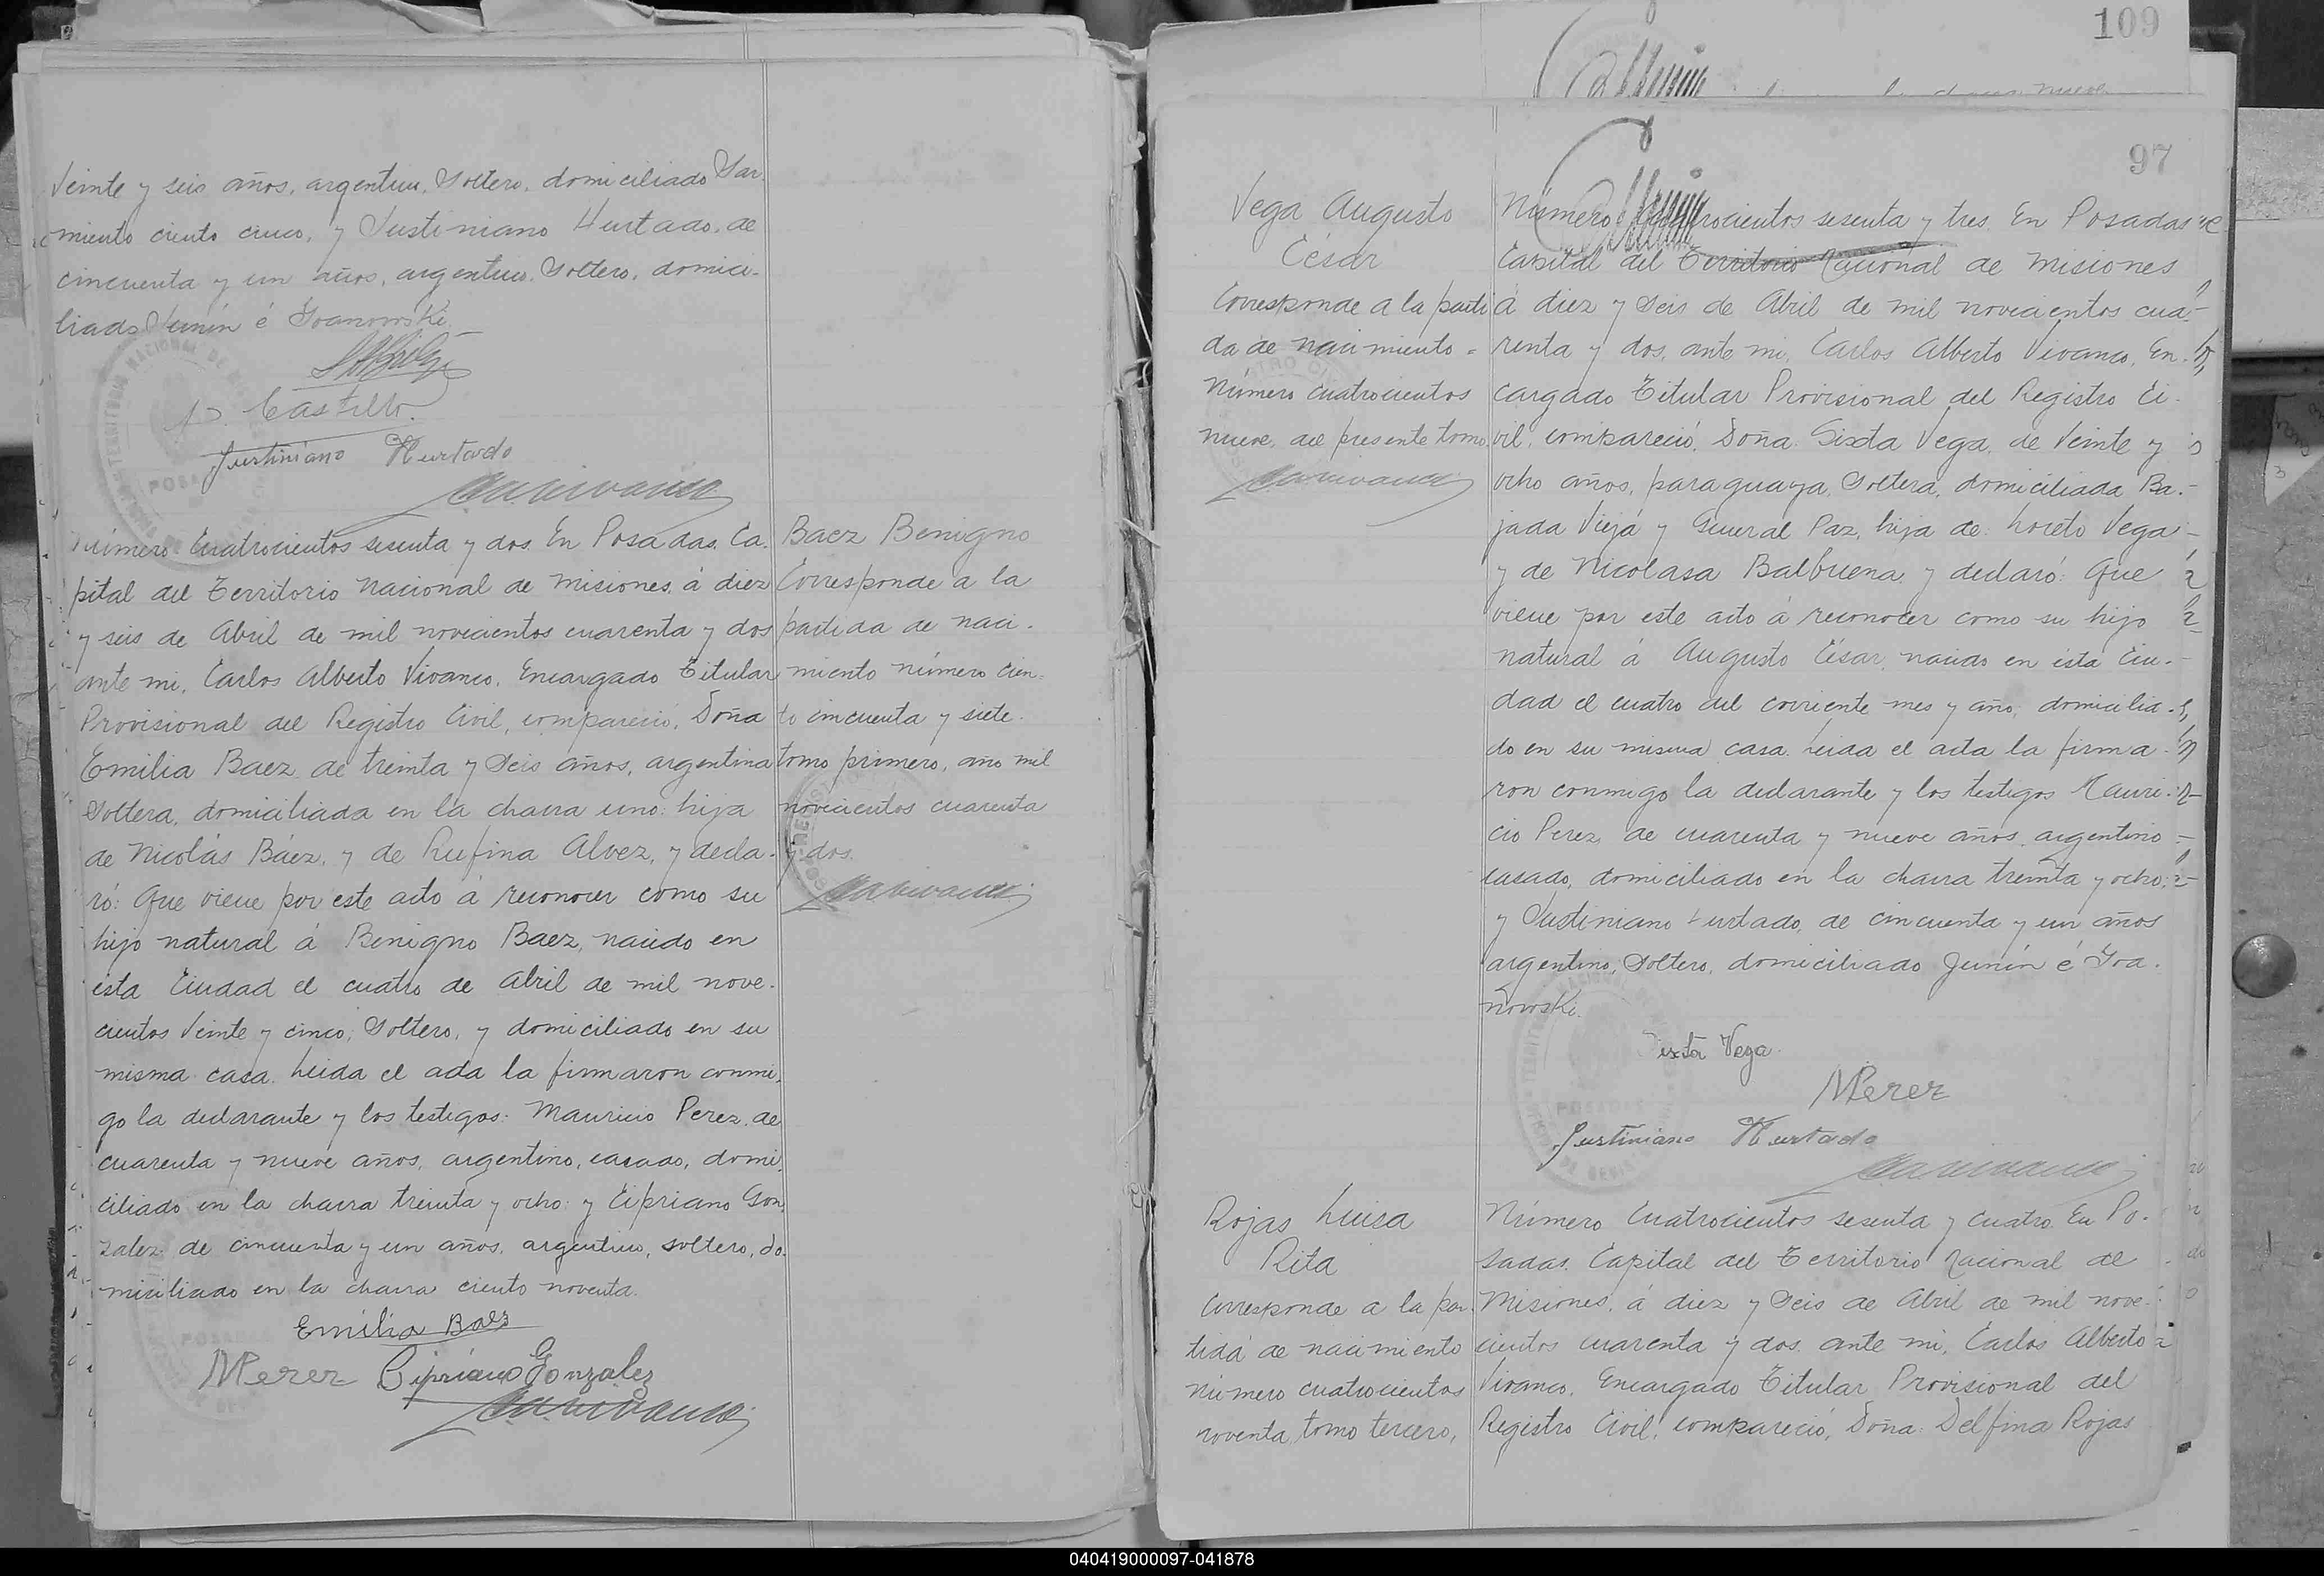 Veinte y seis años, argentino, Soltero, domiciliado Sar-
miento ciento cinco, y Justiniano Hurtado, de
cincuenta y un años, argentino, Soltero, domici-
liado Junín é Yoanowski.
Castillo.
Justiniano Hurtado
Número Cuatrocientos sesenta y dos. En Posadas, Ca-
pital del Territorio Nacional de Misiones, á diez
y seis de Abril de mil novecientos cuarenta y dos
ante mi, Carlos Alberto Vivanco, Encargado Titular
Provisional del Registro Civil, compareció, Doña
Emilia Baez de treinta y Seis años, argentina
Soltera, domiciliada en la chacra uno: hija
de Nicolás Báez, y de Rufina Alvez, y decla-
ró: Que viene por este acto á reconocer como su
hijo natural á Benigno Baez, nacido en
ésta Ciudad el cuatro de Abril de mil nove-
cientos Veinte y cinco; Soltero, y domiciliado en su
misma casa. Leida el acta la firmaron conmi-
go la declarante y los testigos: Mauricio Perez, de
cuarenta y nueve años, argentino, casado, domi-
ciliado en la chacra treinta y ocho: y Cipriano Gon-
zalez de cincuenta y un años, argentino, soltero, do-
miciliado en la chacra ciento noventa.
Emilia Baez
MPerez Cipriano Gonzalez
Baez Benigno
Corresponde a la
partida de naci-
miento número cien-
to cincuenta y siete
tomo primero, año mil
novecientos cuarenta
y dos.
109
97
Vega Augusto
César
Corresponde a la parti
da de nacimiento
Número cuatrocientos
nueve, del presente tomo.
Número Cuatrocientos sesenta y tres. En Posadas
Capital del Territorio Nacional de Misiones
á diez y Seis de Abril de mil novecientos cua-
renta y dos, ante mi, Carlos Alberto Vivanco, En-
cargado Titular Provisional del Registro Ci-
vil, compareció, Doña: Sixta Vega, de Veinte y
ocho años, paraguaya, Soltera, domiciliada Ba-
jada Vieja y General Paz, hija de: Loreto Vega
y de Nicolasa Balbuena, y declaró: Que
viene por este acto á reconocer como su hijo
natural á Augusto César, nacido en ésta Ciu-
dad el cuatro del corriente mes y año, domicilia-
do en su misma casa. Leida el acta la firma-
ron conmigo la declarante y los testigos Mauri-
cio Perez, de cuarenta y nueve años, argentino
casado, domiciliado en la chacra treinta y ocho;
y Justiniano Hurtado, de cincuenta y un años
argentino, Soltero, domiciliado Junín é Yoa-
nowski.
Sixta Vega
MPerez
Justiniano Hurtado
Rojas Luisa
Rita
Corresponde a la par-
tida de nacimiento
Número cuatrocientos
noventa, tomo tercero,
Número Cuatrocientos sesenta y cuatro. En Po-
sadas, Capital del Territorio Nacional de
Misiones, á diez y Seis de Abril de mil nove-
cientos cuarenta y dos, ante mi, Carlos Alberto
Vivanco, Encargado Titular Provisional del
Registro Civil, compareció, Doña: Delfina Rojas
040419000097-041878